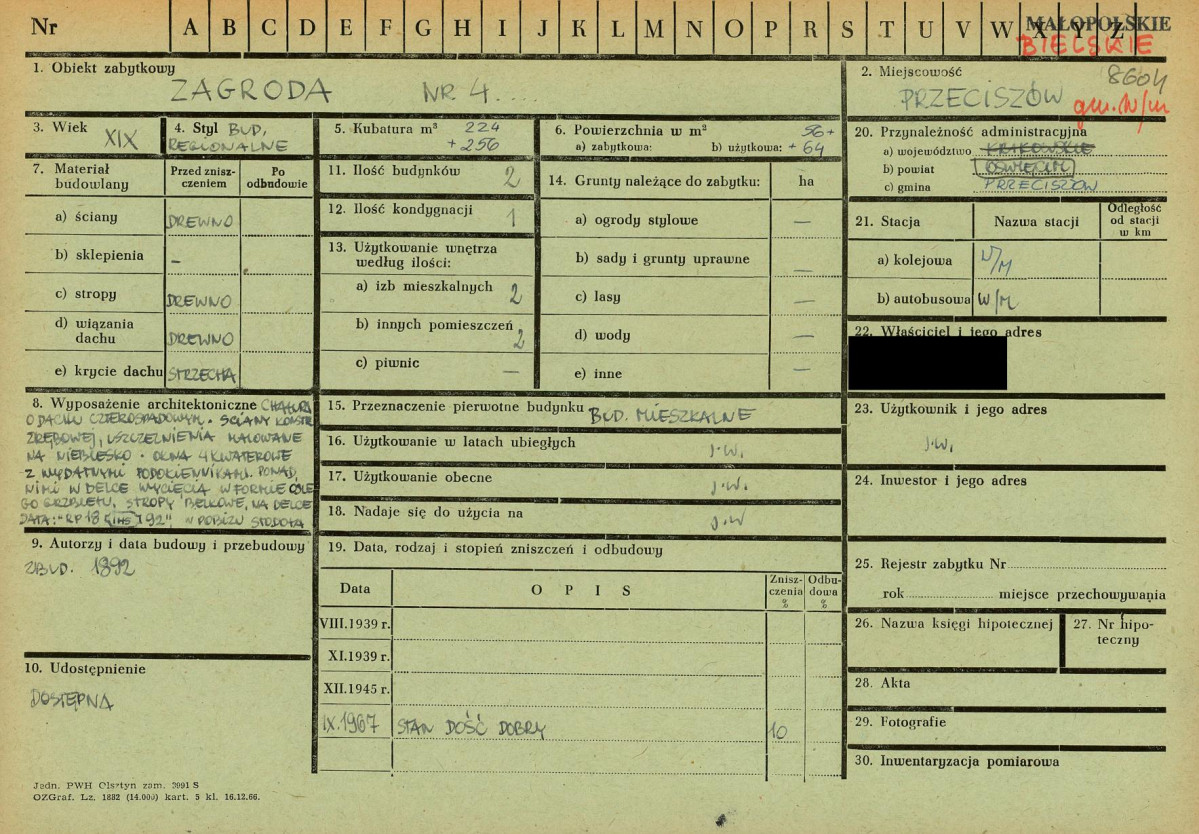 Nr A B C D E F G H I J K L M N O P R S T U V W X Y Z
MAŁOPOLSKIE
BIELSKIE
8604
1. Obiekt zabytkowy
ZAGRODA NR 4....
2. Miejscowość
PRZECISZÓW gm. N/m
3. Wiek XIX
4. Styl BUD,
REGIONALNE
5. Kubatura m³ 224
+ 256
6. Powierzchnia w m²
a) zabytkowa: b) użytkowa: 56+
+ 64
7. Materiał budowlany
Przed zniszczeniem
Po odbudowie
a) ściany DREWNO
b) sklepienia –
c) stropy DREWNO
d) wiązania dachu DREWNO
e) krycie dachu STRZECHA
8. Wyposażenie architektoniczne CHAŁUPA
O DACHU CZTEROSPADOWYM. ŚCIANY KONSTR
ZRĘBOWEJ, USZCZELNIENIA MALOWANE
NA NIEBIESKO. OKNA 4 KWATEROWE
Z WYDATNYMI PODOKIENNIKAMI. PONAD
NIMI W DELCE WYCIĘCIA W FORMIE OŚLE
GO GRZBIETU, STROPY BELKOWE, NA DELCE
DATA: "RP 18 IHS 92" W POBLIŻU STODOŁA
9. Autorzy i data budowy i przebudowy
ZBUD. 1892
10. Udostępnienie
DOSTĘPNA
11. Ilość budynków 2
12. Ilość kondygnacji 1
13. Użytkowanie wnętrza
według ilości:
a) izb mieszkalnych 2
b) innych pomieszczeń 2
c) piwnic —
14. Grunty należące do zabytku: ha
a) ogrody stylowe —
b) sady i grunty uprawne —
c) lasy —
d) wody —
e) inne —
15. Przeznaczenie pierwotne budynku BUD. MIESZKALNE
16. Użytkowanie w latach ubiegłych j.w.
17. Użytkowanie obecne j.w.
18. Nadaje się do użycia na j.w
19. Data, rodzaj i stopień zniszczeń i odbudowy
Data O P I S Zniszczenia % Odbudowa %
VIII.1939 r.
XI.1939 r.
XII.1945 r.
IX.1967 STAN DOŚĆ DOBRY 10
20. Przynależność administracyjna
a) województwo KRAKOWSKIE
b) powiat OŚWIĘCIM
c) gmina PRZECISZÓW
21. Stacja Nazwa stacji Odległość od stacji w km
a) kolejowa N/M
b) autobusowa W/M
22. Właściciel i jego adres
23. Użytkownik i jego adres
j.w.
24. Inwestor i jego adres
25. Rejestr zabytku Nr
rok miejsce przechowywania
26. Nazwa księgi hipotecznej
27. Nr hipoteczny
28. Akta
29. Fotografie
30. Inwentaryzacja pomiarowa
Jedn. PWH Olsztyn zam. 3991 S
OZGraf. Lz. 1882 (14.000) kart. 5 kl. 16.12.66.